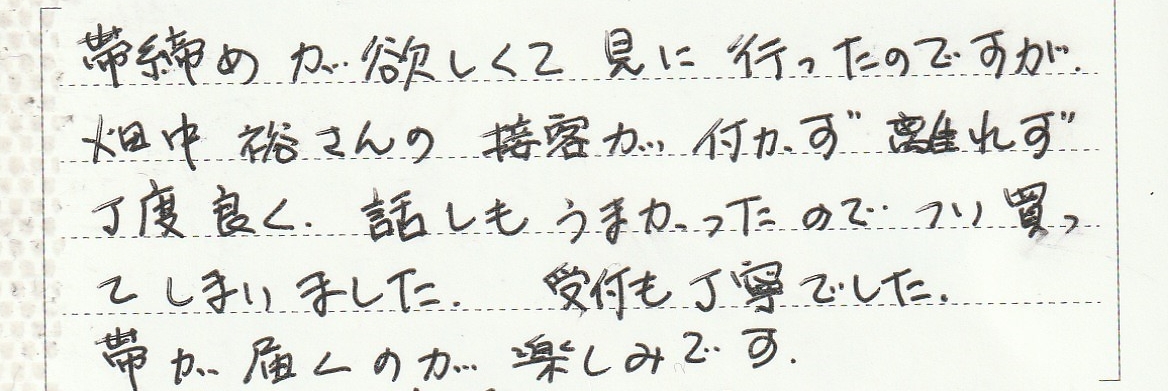 帯締めが欲しくて見に行ったのですが.
畑中裕さんの接客が付かず離れず
丁度良く.話しもうまかったのでつい買っ
てしまいました. 受付も丁寧でした.
帯が届くのが楽しみです.